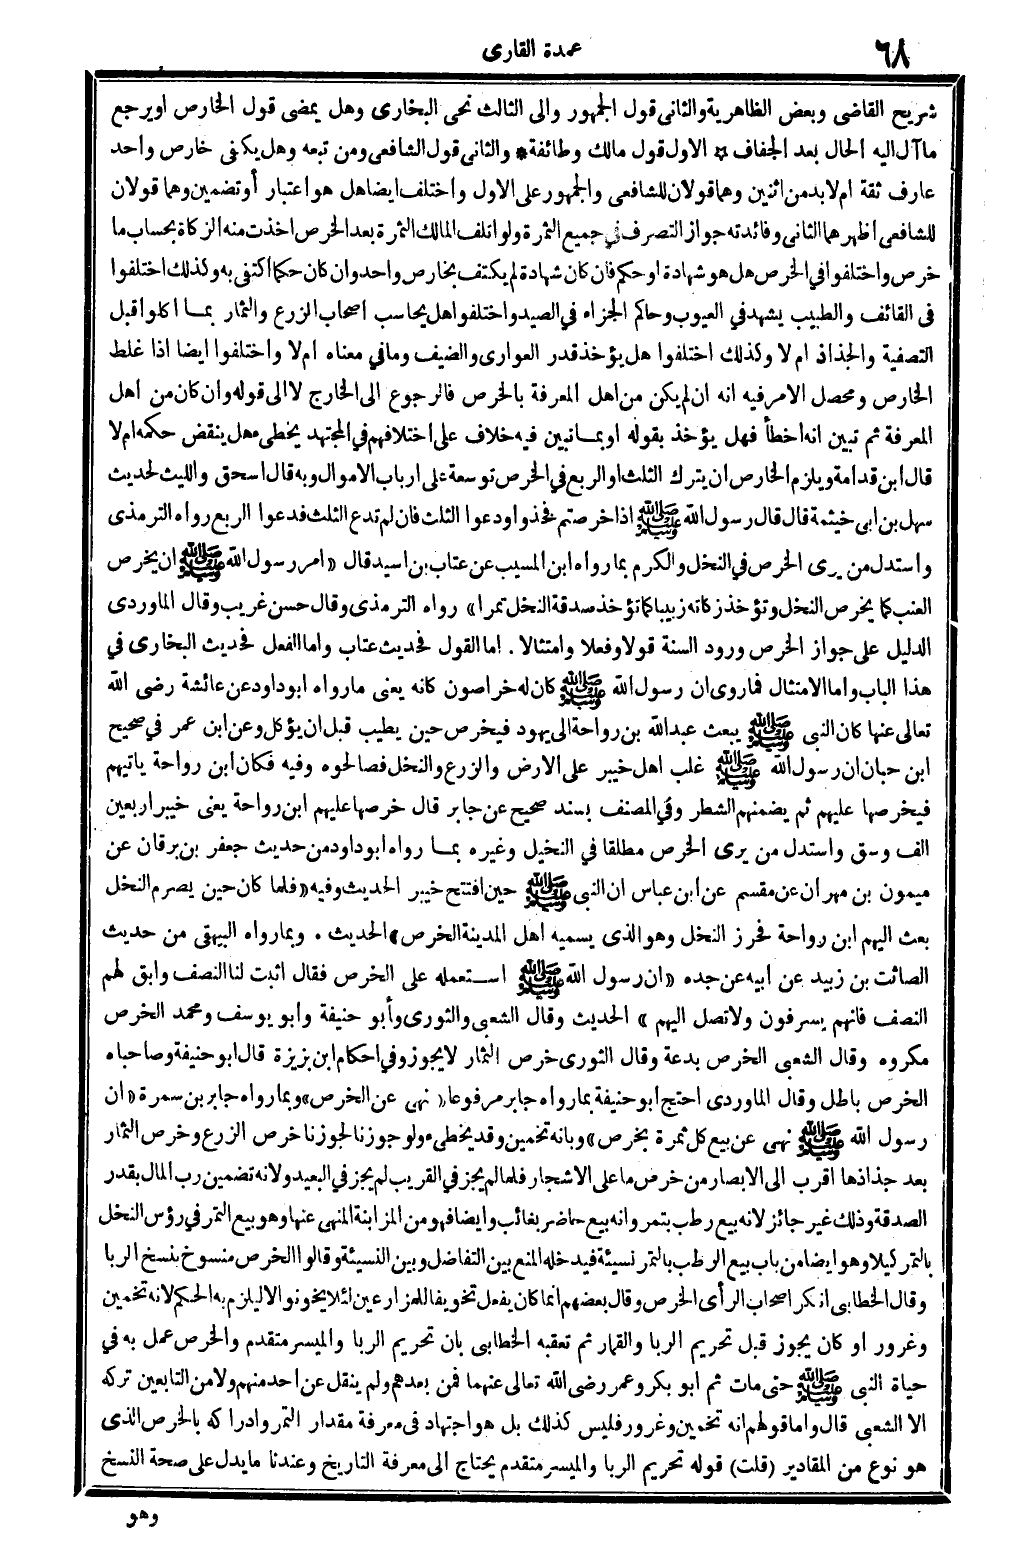 ٦٨
عمدة القارى
شريح القاضى وبعض الظاهرية والثانى قول الجمهور والى الثالث نحى البخارى وهل يمضى قول الخارص اويرجع
ماآل اليه الحال بعد الجفاف * الاول قول مالك وطائفة * والثانى قول الشافعى ومن تبعه وهل يكفى خارص واحد
عارف ثقة ام لابد من اثنين وهما قولان للشافعى والجمهور على الاول واختلف ايضا هل هو اعتبار أو تضمين وهما قولان
للشافعى اظهرهما الثانى وفائدته جواز التصرف في جميع الثمرة ولو اتلف المالك الثمرة بعد الخرص اخذت منه الزكاة بحساب ما
خرص واختلفوا في الخرص هل هو شهادة او حكم فان كان شهادة لم يكتف بخارص واحد وان كان حكما اكتفى به وكذلك اختلفوا
فى القائف والطبيب يشهد في العيوب وحاكم الجزاء في الصيد واختلفوا هل يحاسب أصحاب الزرع والثمار بمـا اكلوا قبل
التصفية والجذاذ ام لا وكذلك اختلفوا هل يؤخذ قدر العوارى والضيف ومافي معناه ام لا واختلفوا ايضا اذا غلط
الخارص ومحصل الامر فيه انه ان لم يكن من اهل المعرفة بالخرص فالرجوع الى الخارج لا الى قوله وان كان من اهل
المعرفة ثم تبين انه اخطأ فهل يؤخذ بقوله او بما تبين فيه خلاف على اختلافهم في المجتهد يخطىء هل ينقض حكمه ام لا
قال ابن قدامة ويلزم الخارص ان يترك الثلث او الربع في الخرص توسعة على ارباب الاموال وبه قال اسحق والليث لحديث
سهل بن ابى خيثمة قال قال رسول الله ﷺ اذا خرصتم فخذوا ودعوا الثلث فان لم تدع الثلث فدعوا الربع رواه الترمذى
واستدل من يرى الخرص في النخل والكرم بما رواه ابن المسيب عن عتاب بن اسيد قال «امر رسول الله ﷺ ان يخرص
العنب كما يخرص النخل وتؤخذ زكاته زبيبا كما تؤخذ صدقة النخل تمرا» رواه الترمذى وقال حسن غريب وقال الماوردى
الدليل على جواز الخرص ورود السنة قولا وفعلا وامتثالا . اما القول فحديث عتاب واما الفعل فحديث البخارى في
هذا الباب واما الامتثال فما روى ان رسول الله ﷺ كان له خراصون كانه يعنى ما رواه ابو داود عن عائشة رضى الله
تعالى عنها كان النبى ﷺ يبعث عبدالله بن رواحة الى يهود فيخرص حين يطيب قبل ان يؤكل وعن ابن عمر في صحيح
ابن حبان ان رسول الله ﷺ غلب اهل خيبر على الارض والزرع والنخل فصالحوه وفيه فكان ابن رواحة ياتيهم
فيخرصها عليهم ثم يضمنهم الشطر وفي المصنف بسند صحيح عن جابر قال خرصها عليهم ابن رواحة يعنى خيبر اربعين
الف وسق واستدل من يرى الخرص مطلقا في النخيل وغيره بمـا رواه ابو داود من حديث جعفر بن برقان عن
ميمون بن مهران عن مقسم عن ابن عباس ان النبى ﷺ حين افتتح خيبر الحديث وفيه «فلما كان حين يصرم النخل
بعث اليهم ابن رواحة فحرز النخل وهو الذى يسميه اهل المدينة الخرص» الحديث . وبما رواه البيهقى من حديث
الصائت بن زبيد عن أبيه عن جده «ان رسول الله ﷺ استعمله على الخرص فقال اثبت لنا النصف وابق لهم
النصف فانهم يسرفون ولا تصل اليهم» الحديث وقال الشعبى والثورى وأبو حنيفة وأبو يوسف ومحمد الخرص
مكروه وقال الشعبى الخرص بدعة وقال الثورى خرص الثمار لايجوز وفي احكام ابن بزيزة قال ابو حنيفة وصاحباه
الخرص باطل وقال الماوردى احتج ابو حنيفة بما رواه جابر مرفوعا «نهى عن الخرص» وبما رواه جابر بن سمرة «ان
رسول الله ﷺ نهى عن بيع كل ثمرة بخرص» وبانه تخمين وقد يخطىء ولو جوزنا لجوزنا خرص الزرع وخرص الثمار
بعد جذاذها اقرب الى الابصار من خرص ما على الاشجار فلما لم يجز في القريب لم يجز في البعيد ولانه تضمين رب المال بقدر
الصدقة وذلك غير جائز لانه بيع رطب بتمر وانه بيع حاضر بغائب وايضا فهو من المزابنة المنهى عنها وهو بيع التمر في رؤس النخل
بالتمر كيلا وهو ايضا من باب بيع الرطب بالتمر نسيئة فيدخله المنع بين التفاضل وبين النسيئة وقالوا الخرص منسوخ بنسخ الربا
وقال الخطابى انكر اصحاب الرأى الخرص وقال بعضهم انما كان يفعل تخويفا للمزارعين لئلا يخونوا لا ليلزم به الحكم لانه تخمين
وغرور او كان يجوز قبل تحريم الربا والقمار ثم تعقبه الخطابى بان تحريم الربا والميسر متقدم والخرص عمل به في
حياة النبى ﷺ حتى مات ثم ابو بكر وعمر رضى الله تعالى عنهما فمن بعدهم ولم ينقل عن احد منهم ولا من التابعين تركه
الا الشعبى قال واما قولهم انه تخمين وغرور فليس كذلك بل هو اجتهاد فى معرفة مقدار التمر وادراكه بالخرص الذى
هو نوع من المقادير (قلت) قوله تحريم الربا والميسر متقدم يحتاج الى معرفة التاريخ وعندنا ما يدل على صحة النسخ
وهو